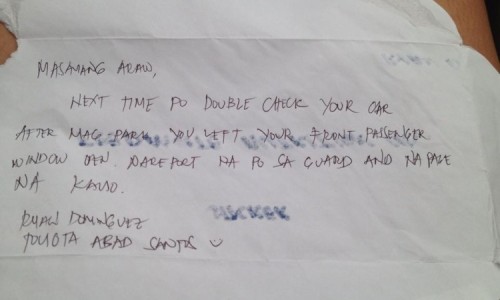 MASAMANG ARAW,
NEXT TIME PO DOUBLE CHECK YOUR CAR
AFTER MAG PARK YOU LEFT YOUR FRONT PASSENGER
WINDOW OPEN. NAREPORT NA PO SA GUARD AND NA PAGE
NA KAYO.
RYAN DOMINGUEZ
TOYOTA ABAD SANTOS